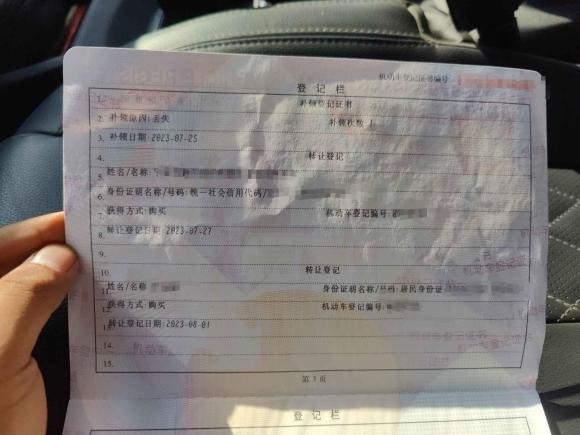 机动车登记证书编号
登 记 栏
1. 补领登记证书
2. 补领原因:丢失 补领次数:1
3. 补领日期:2023-07-25
4. 转让登记
5. 姓名/名称:
6. 身份证明名称/号码:统一社会信用代码/
7. 获得方式:购买 机动车登记编号:
8. 转让登记日期:2023-07-27
9.
10. 转让登记
11. 姓名/名称 身份证明名称/号码:居民身份证
12. 获得方式:购买 机动车登记编号:
13. 转让登记日期:2023-08-01
14.
15.
第 3 页
登 记 栏